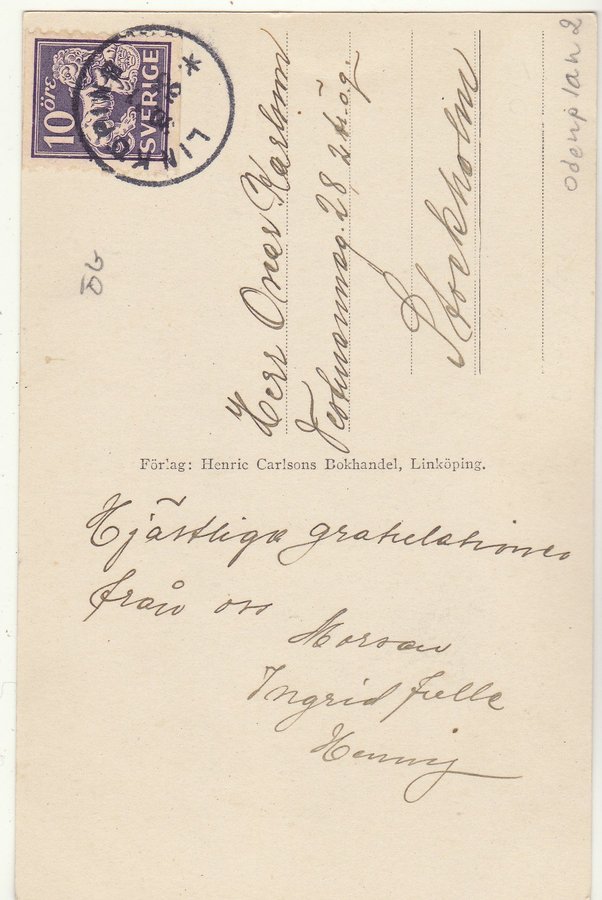 10 öre
SVERIGE
LINKÖPING
Herr Karlsson
28 2 tr. ö. g.
Stockholm
Odenplan 2
ÖG
Förlag: Henric Carlsons Bokhandel, Linköping.
Hjärtliga gratulationer
från oss
Morsan
Ingrid
Henning